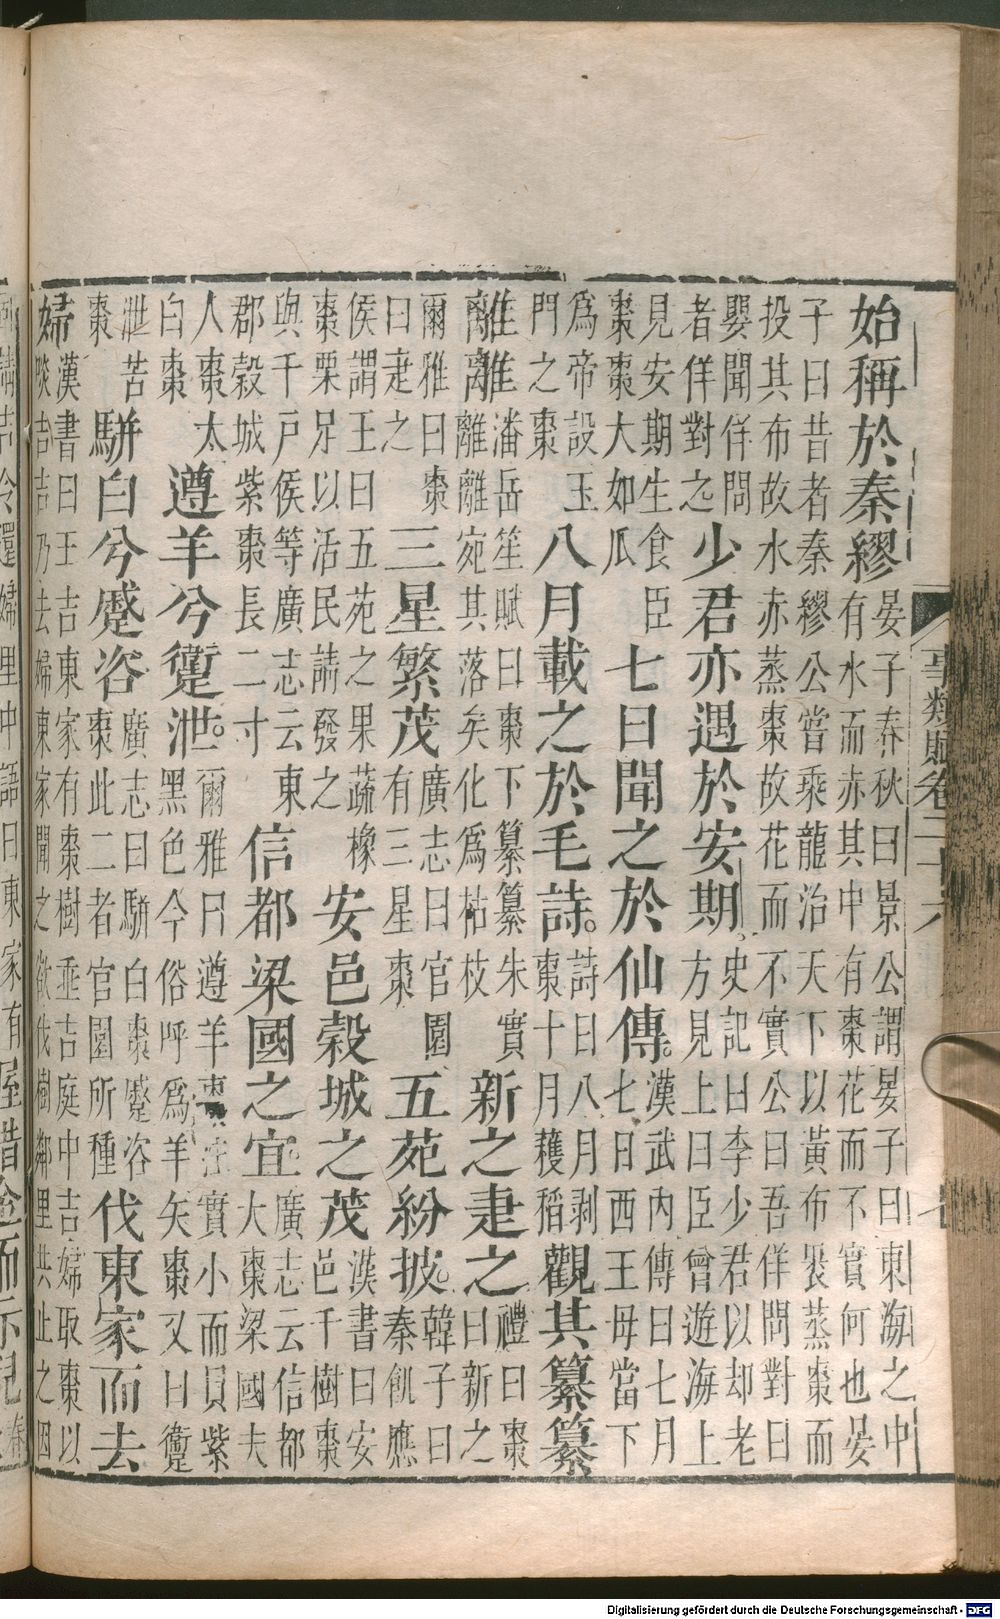 事類賦卷二十六
始稱於秦繆
晏子春秋曰景公謂晏子曰東海之中
有水而赤其中有棗花而不實何也晏
子曰昔者秦繆公當乘龍治天下以黃布裹蒸棗而
投其布故水赤蒸棗故花而不實公曰吾佯問對曰
嬰聞佯問
者佯對之
少君亦遇於安期
史記曰李少君以却老
方見上曰臣曾遊海上
見安期生食臣
棗棗大如瓜
七日聞之於仙傳
漢武內傳曰七月
七日西王母當下
爲帝設玉
門之棗
八月載之於毛詩
詩曰八月剥
棗十月穫稻
觀其纂纂
離離
潘岳笙賦曰棗下纂纂朱實
離離宛其落矣化爲枯枝
新之疌之
禮曰棗
曰新之
爾雅曰棗
曰疌之
三星繁茂
廣志曰官園
有三星棗
五苑紛披
韓子曰
秦飢應
侯謂王曰五苑之果蔬橡
棗栗足以活民請發之
安邑穀城之茂
漢書曰安
邑千樹棗
與千戶侯等廣志云東
郡穀城紫棗長二寸
信都梁國之宜
廣志云信都
大棗梁國夫
人棗太
白棗
遵羊兮衞泄
爾雅曰遵羊棗注實小而員紫
黑色今俗呼爲羊矢棗又曰衞
泄苦
棗
駢白兮蹙咨
廣志曰駢白棗蹙咨
棗此二者官園所種
伐東家而去
婦
漢書曰王吉東家有棗樹垂吉庭中吉婦取棗以
啖吉吉乃去婦東家聞之欲伐樹鄰里共止之因
請吉令還婦里中語曰東家有
Digitalisierung gefördert durch die Deutsche Forschungsgemeinschaft - DFG